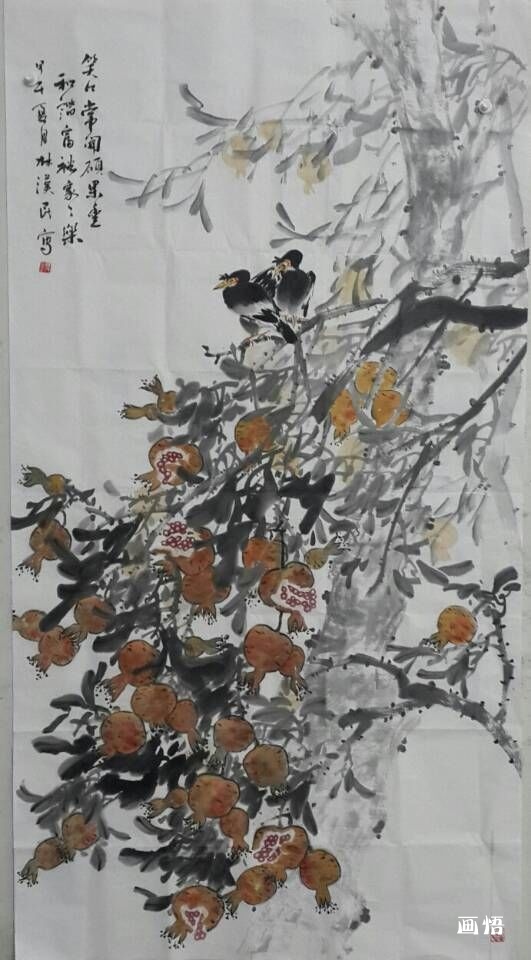 笑口常開碩果重
和諧富裕家々樂
甲午夏月林漢民寫
画悟